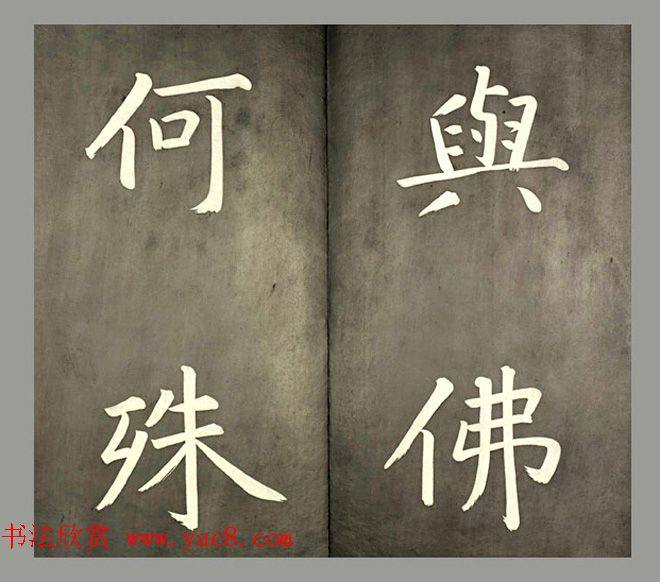 與佛
何殊
书法欣赏 www.yac8.com